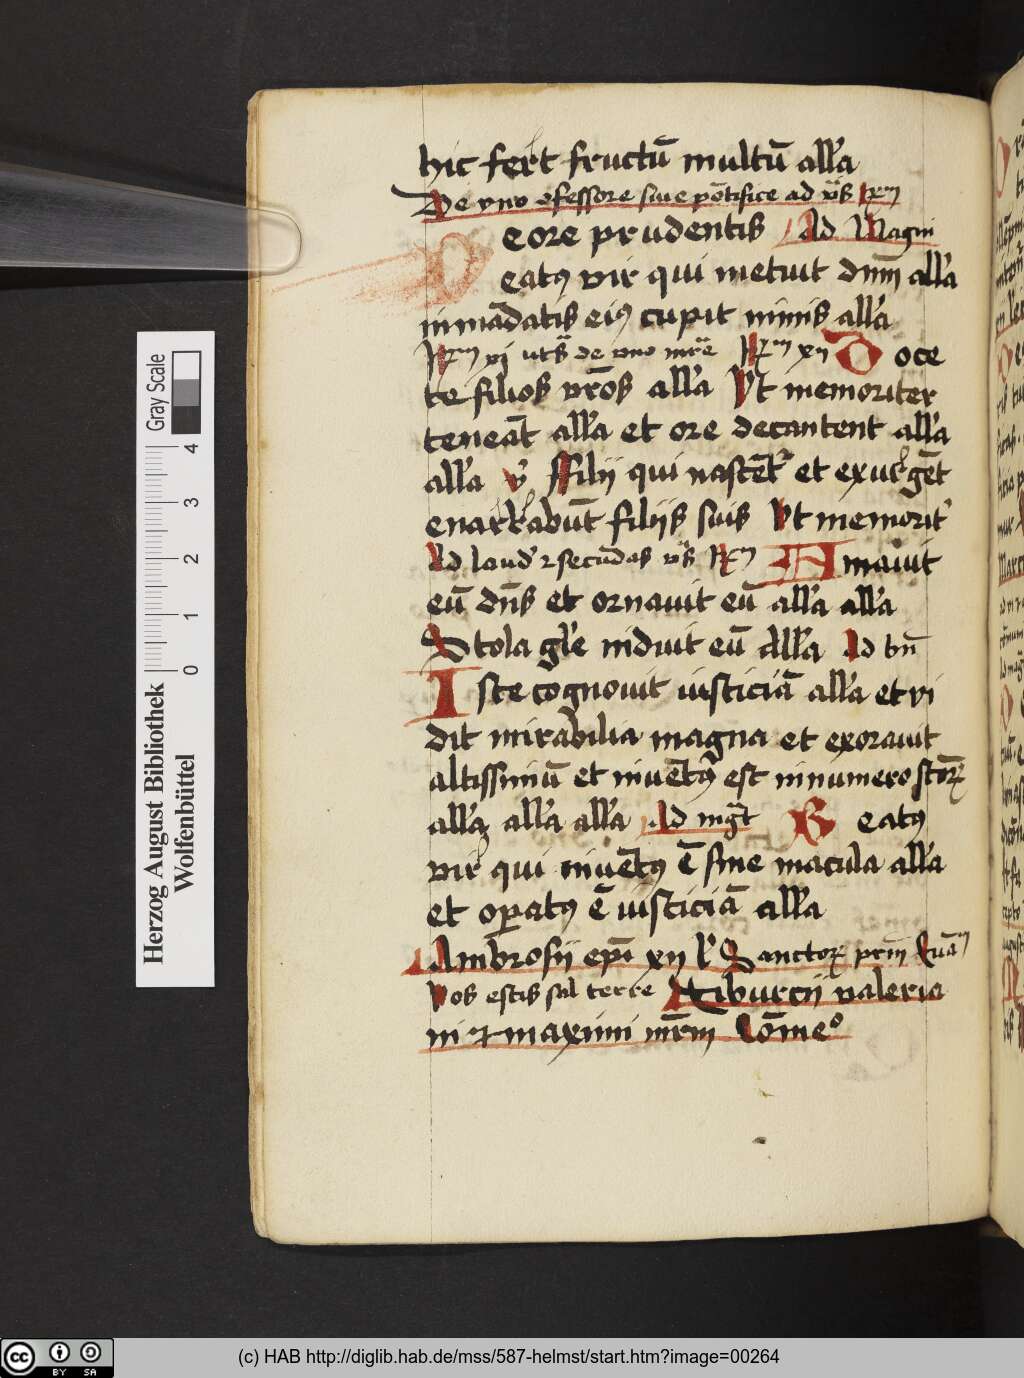 hic fert fructū multū all'a
De vno ɔfessore siue pōtifice ad vs̄ Rm
eore prudentis Ad Magni
eatꝰ vir qui metuit dnm̄ all'a
in mādatis eiꝰ cupit nimis all'a
Rm vj uts̄ de vno mr̄e Rm xij Doce
te filios vr̄os all'a Vt memoriter
teneāt all'a et ore decantent all'a
all'a v̄ Filij qui nascēt' et exurgēt
enarrabūt filijs suis Vt memorit'
Ad laud' ⁊ secūdas vs̄ Rm Amauit
eū dn̄s et ornauit eū all'a all'a
Stola gl'e induit eū all'a Ad bn̄
Iste cognouit iusticiā all'a et vi
dit mirabilia magna et exorauit
altissimū et inuētꝰ est in numero scōꝝ
all'a all'a all'a Ad mgt̄ Beatꝰ
vir qui inuētꝰ ē sine macula all'a
et opatꝰ ē iusticiā all'a
Ambrosij ep̄i xij l' Sanctoꝝ prm̄ Euām
Vos estis sal terre Tiburcij valeria
ni ⁊ maximi mr̄m Cōme⁰
Gray Scale
0 1 2 3 4
Herzog August Bibliothek
Wolfenbüttel
cc BY SA
(c) HAB http://diglib.hab.de/mss/587-helmst/start.htm?image=00264